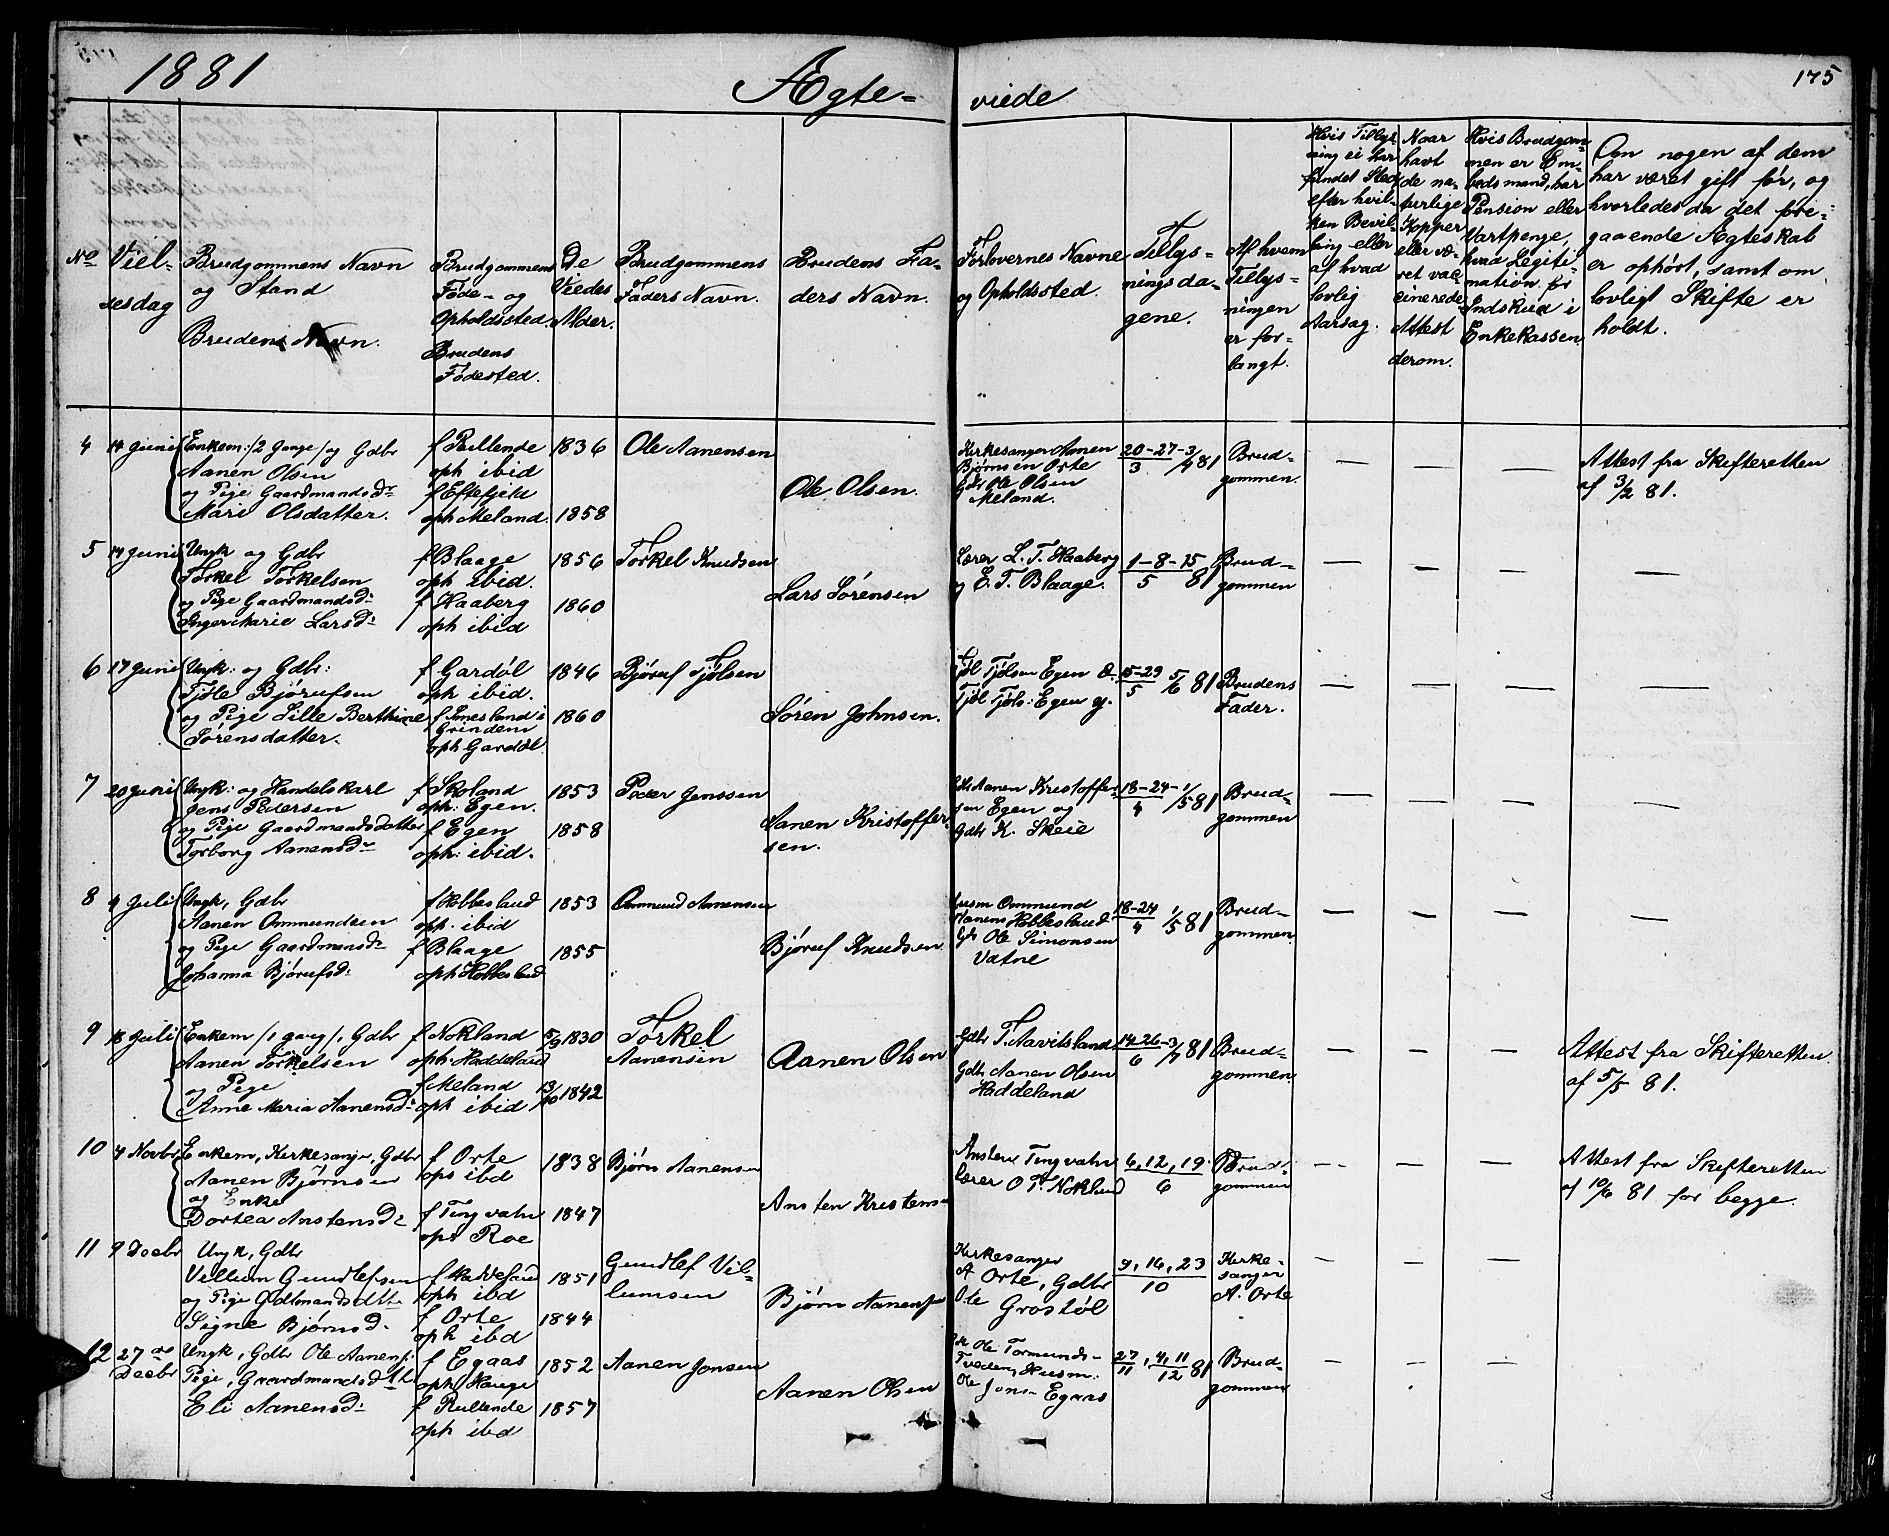 1881
Ægte-
viede
175
No
Viel-
sesdag
Brudgommens Navn
og Stand
Brudens Navn.
Brudgommens
Føde- og
Opholdssted
Brudens
Fødested.
De
Viedes
Alder.
Brudgommens
Faders Navn.
Brudens Fa-
ders Navn.
Forlovernes Navne
og Opholdssted.
Tillys-
ningsda-
gene.
Af hvem
Tillys-
ningen
er for-
langt.
Hvis Tillys-
ning ei har
fundet Sted
efter hvil-
ken Bevil-
ling eller
af hvad
lovlig
Aarsag.
Naar
havt
de na-
turlige
Kopper
eller væ-
ret vac-
cinerede
Attest
derom.
Hvis Brudgom-
men er Em-
bedsmand, har
Pension eller
Vartpenge,
hvad Legiti-
mation for
Indskud i
Enkekassen
Om nogen af dem
har været gift før, og
hvorledes da det fore-
gaaende Ægteskab
er ophørt, samt om
lovligt Skifte er
holdt.
4 14 Juni Enkem: /2 Gange/ og Gdbr
Aanen Olsen
og Pige Gaardmandsdr
Mari Olsdatter.
f Rullende
oph ibid
f Eftefjeld
oph Meland.
1836
1858
Ole Aanensen
Ole Olsen.
Kirkesanger Aanen
Bjørnsen Orte
Gdbr Ole Olsen
Meland.
20-27-3/4 81
3
Brud-
gommen.
— — —
Attest fra Skifteretten
af 3/2 81.
5 14 Juni Ungk og Gdbr
Torkel Torkelsen
og Pige Gaardmandsd:
Inger Marie Larsd:
f Blaage
oph ibid.
f Haaberg
oph ibid
1856
1860
Torkel Knudsen
Lars Sørensen
Lærer L. T. Haaberg
og E. T. Blaage.
1-8-15
5 81
Brud-
gommen
— — — —
6 17 Juni Ungk: og Gdbr:
Tjøle Bjørufsen
og Pige Lille Berthine
Sørensdatter.
f Gardøl
oph ibid.
f Imesland i
Grindem
oph Gardøl.
1846
1860
Bjøruf Tjølsen
Søren Johnsen.
Tjøl Tjølsen Egen &
Tjøl Tjøls: Egen y.
15-29 5/6 81
5
Brudens
Fader.
— — — —
7 20 Juni Ungk: og Handelskarl
Jens Pedersen
og Pige Gaardmandsdatter
Torborg Aanensdr
f Skoland
oph: Egen.
f Egen
oph: ibid.
1853
1858
Peder Jenssen
Aanen Kristoffer-
sen.
Aanen Kristoffer-
sen Egen og
Gdbr K. Skeie
18-24-1/5 81
4
Brud-
gommen
— — — —
8 4 Juli Ungk, Gdbr
Aanen Ommundsen
og Pige Gaardmandsdr
Johanna Bjørufsd:
f Hobbesland
oph. ibid
f Blaage
oph Hobbesland
1853
1855
Ommund Aanensen
Bjøruf Knudsen
Husm Ommund
Aanens Hobbesland
Gdbr Ole Simonsen
Vatne
18-24 1/5 81
4
Brud-
gommen.
— — — —
9 18 Juli Enkem /1 gang/, Gdbr
Aanen Torkelsen
og Pige
Anne Maria Aanensd:
f Nokland
oph: Haddeland
f Meland
oph ibid
5/9 1830
13/10 1842
Torkel
Aanensen
Aanen Olsen
Gdbr T. Aavitsland
Gdbr Aanen Olsen
Haddeland
14-26-3/7 81
6
Brud-
gommen.
— — —
Attest fra Skifteretten
af 5/5 81.
10 4 Novbr Enkem, Kirkesanger, Gdbr
Aanen Bjørnsen
og Enke
Dortea Anstensd:
f Orte
oph ibd
f Tingvatn
oph Roe
1838
1847
Bjørn Aanensen
Ansten Kristens
Ansten Tingvatn
Lærer O T. Nokland
6, 12, 19.
6
Brud-
gommen
— — —
Attest fra Skifteretten
af 10/6 81 for begge.
11 9 Decbr Ungk, Gdbr
Vellum Gundlefsen
og Pige Gdlmandsdtt
Signe Bjørnsd.
f Haddeland
oph ibd
f Orte
oph ibd
1851
1844
Gundlef Vil-
lumsen
Bjørn Aanens
Kirkesanger
A Orte, Gdbr
Ole Grostøl
9, 16, 23
10
Kirke-
sanger
A. Orte
— — —
12 27de
Decbr
Ungk, Gdbr Ole Aanens.
Pige, Gaardmandsdtt
Eli Aanensd:
f Egaas
oph Hauge
f Rullende
oph ibd
1852
1857
Aanen Jonsen
Aanen Olsen
Ole Tormunds-
Tveden, Husm.
Ole Jons- Egaas
27/11, 4,11/12 81
Brud-
gommen
— — —